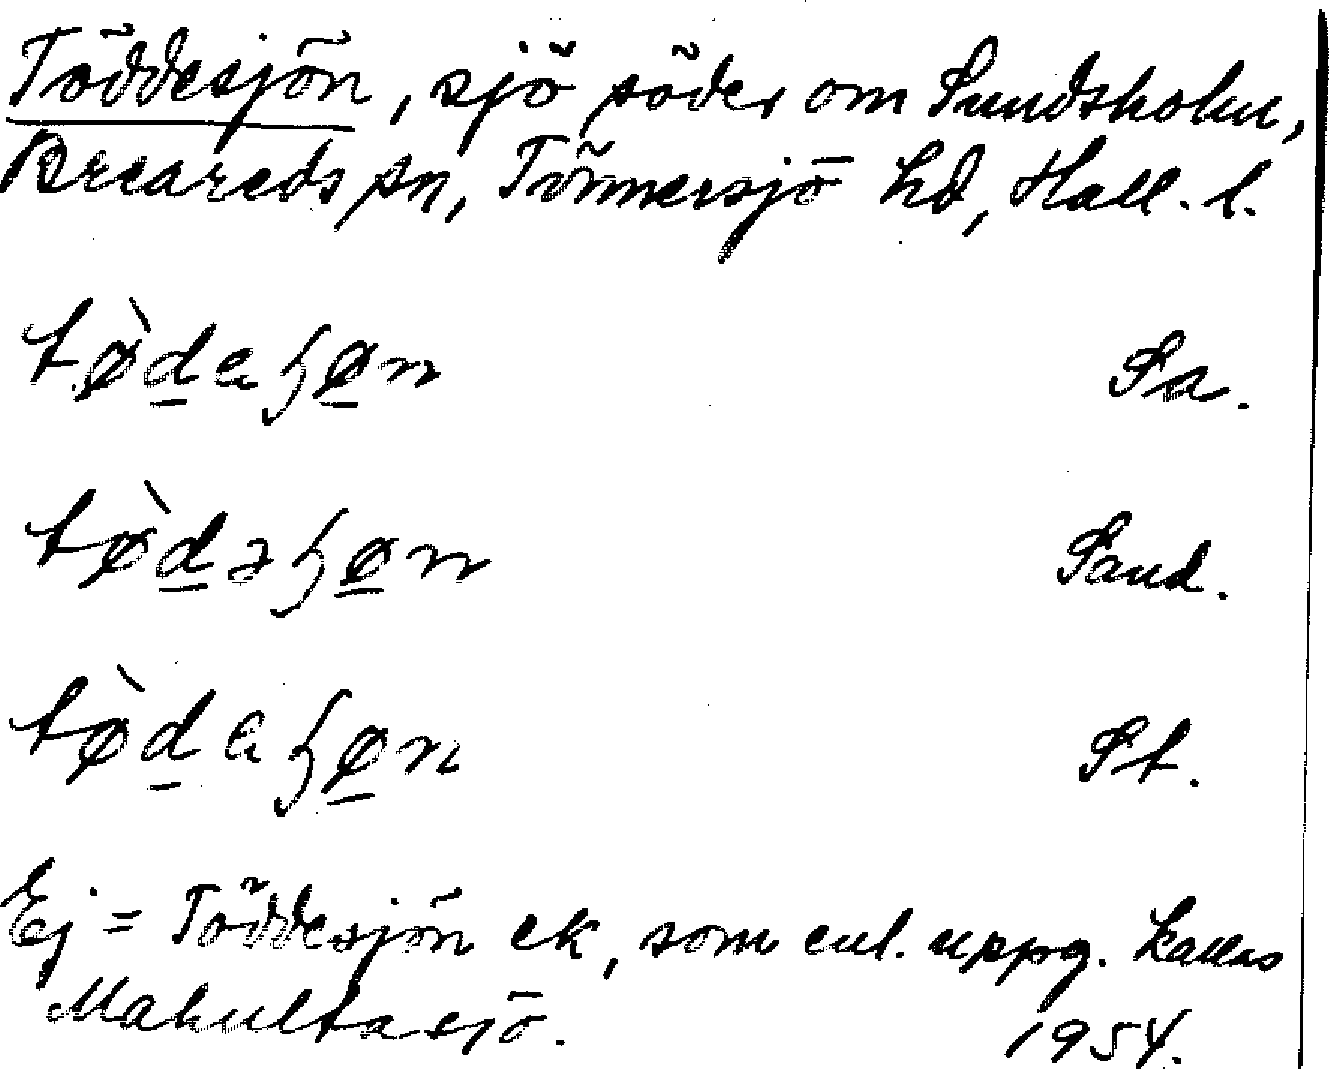 Töddesjön, sjö söder om Sundsholm,
Breareds sn, Tönnersjö hd, Hall. l.
tø̀d̲aɧø̲n Sa.
tø̀d̲əɧø̲n Sand.
tø̀d̲aɧø̲n St.
Ej = Töddesjön ek, som enl. uppg. kallas
Mahultasjö. 1954.